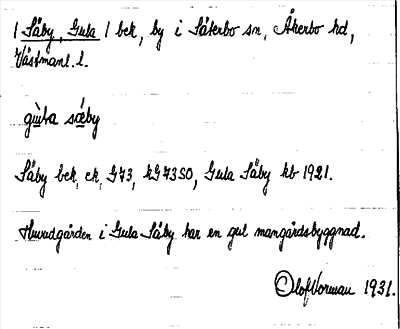 / Säby, Gula / bek, by i Säterbo sn, Åkerbo hd,
Västmanl. l.
gu̇̀la sǽby
Säby bek, ek, G73, kG73SO, Gula Säby kb 1921.
Huvudgården i Gula Säby har en gul mangårdsbyggnad.
Olof Norman 1931.